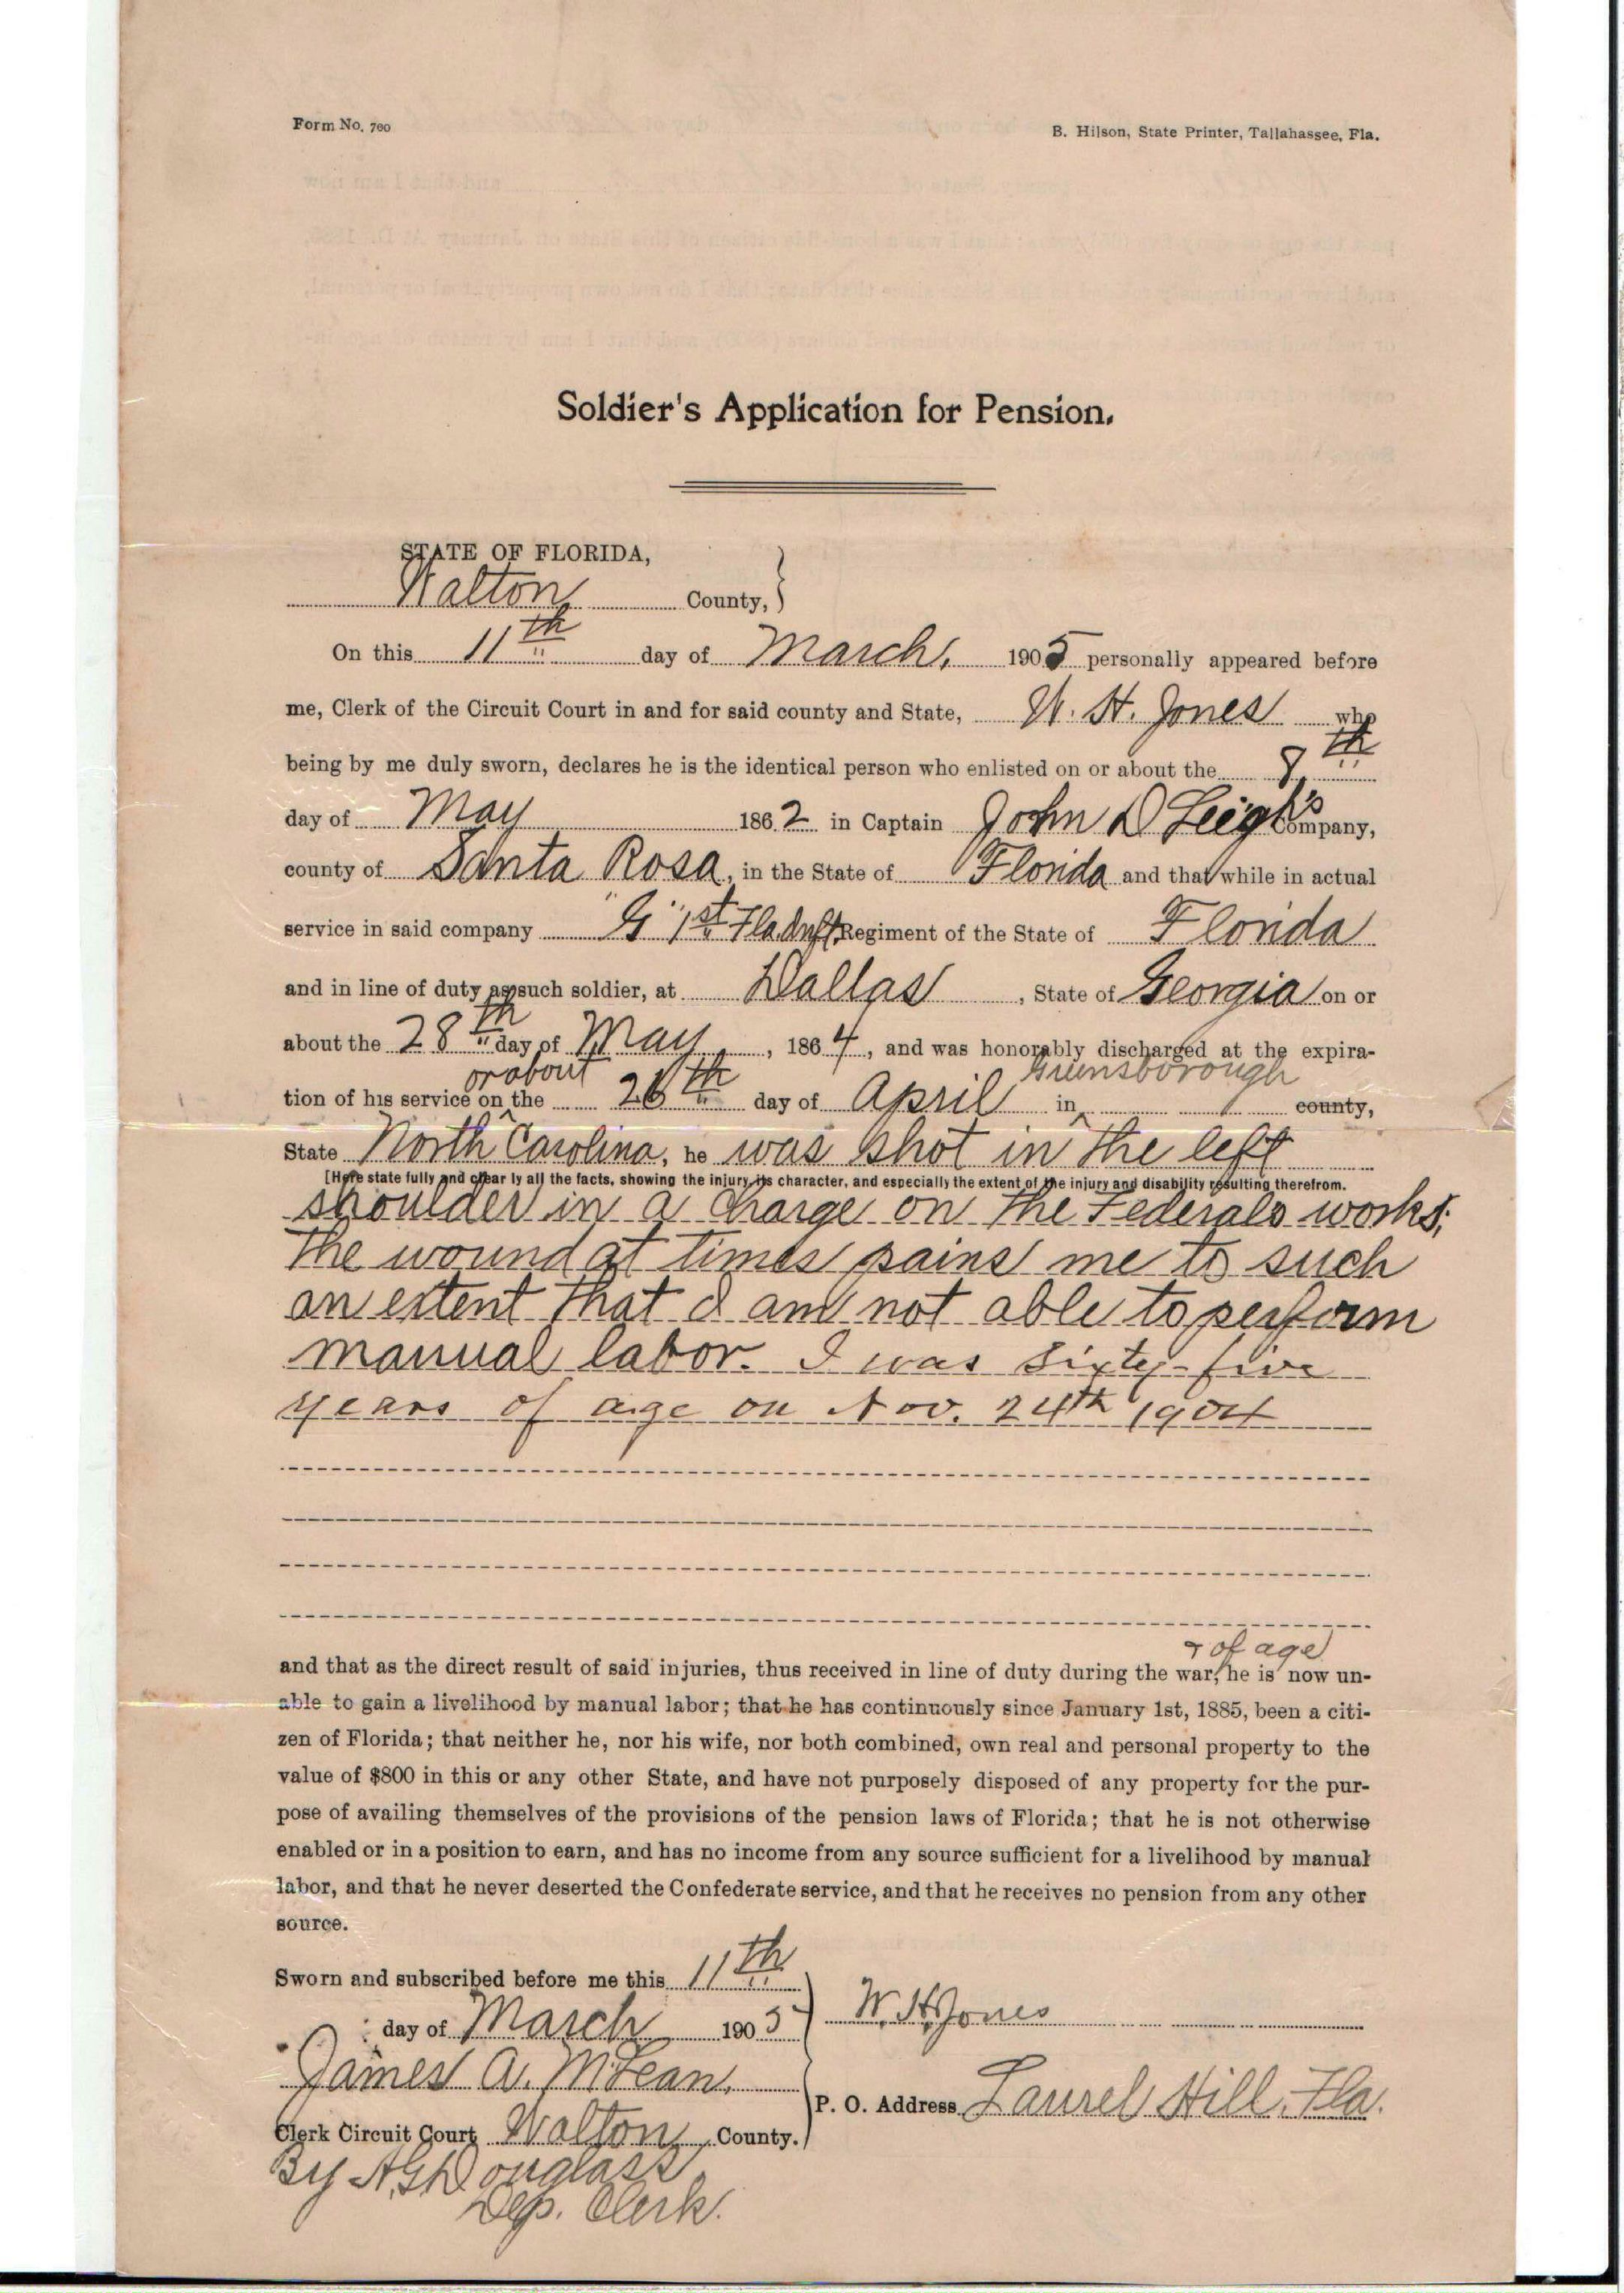 Form No. 700
B. Hilson, State Printer, Tallahassee, Fla.
Soldier's Application for Pension.
STATE OF FLORIDA,
Walton County,
On this 11th day of March, 1905 personally appeared before
me, Clerk of the Circuit Court in and for said county and State, W. H. Jones who
being by me duly sworn, declares he is the identical person who enlisted on or about the 8th
day of May 1862 in Captain John D Leigh's Company,
county of Santa Rosa, in the State of Florida and that while in actual
service in said company "G" 1st Fla Inft Regiment of the State of Florida
and in line of duty as such soldier, at Dallas, State of Georgia on or
about the 28th day of May, 1864, and was honorably discharged at the expira-
or about Greensborough
tion of his service on the 26th day of April in county,
State North Carolina, he was shot in the left
[Here state fully and clear ly all the facts, showing the injury, its character, and especially the extent of the injury and disability resulting therefrom.
shoulder in a charge on the Federals works;
the wound at times pains me to such
an extent that I am not able to perform
manual labor. I was sixty-five
years of age on Nov. 24th 1904
& of age
and that as the direct result of said injuries, thus received in line of duty during the war, he is now un-
able to gain a livelihood by manual labor; that he has continuously since January 1st, 1885, been a citi-
zen of Florida; that neither he, nor his wife, nor both combined, own real and personal property to the
value of $800 in this or any other State, and have not purposely disposed of any property for the pur-
pose of availing themselves of the provisions of the pension laws of Florida; that he is not otherwise
enabled or in a position to earn, and has no income from any source sufficient for a livelihood by manual
labor, and that he never deserted the Confederate service, and that he receives no pension from any other
source.
Sworn and subscribed before me this 11th
day of March 1905
W. H. Jones
James A. McLean,
P. O. Address Laurel Hill, Fla.
Clerk Circuit Court Walton County.
By A.G. Douglass
Dep. Clerk.